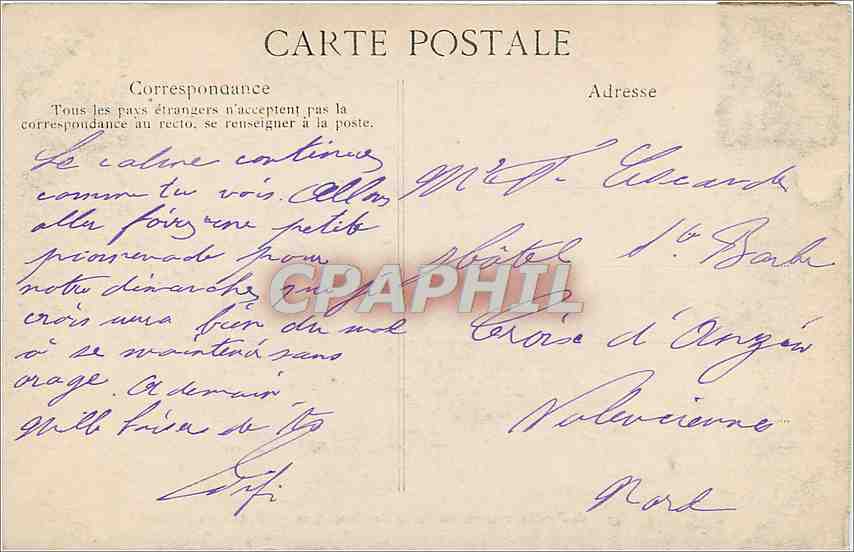 CARTE POSTALE
Correspondance
Tous les pays étrangers n'acceptent pas la
correspondance au recto, se renseigner à la poste.
Adresse
Le calme continue
comme tu vois. Allons
aller faire une petite
promenade pour
notre démarche, que je
crois aura bien du mal
à se maintenir sans
orage. A demain
Mille baisers de
Fifi
Hôtel Ste Barbe
Croix d'Anzin
Valenciennes
Nord
CPAPHIL